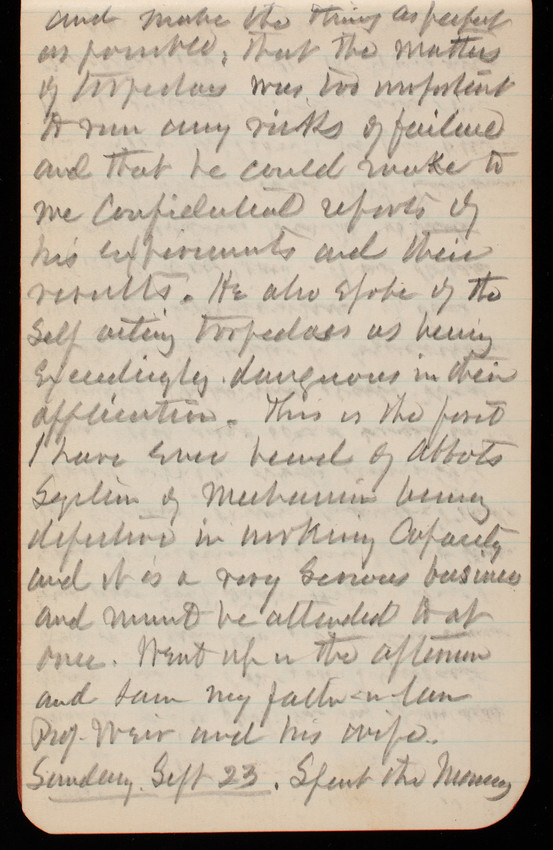 and make the thing as perfect
as possible, that the matters
of torpedoes was too important
to run any risks of failure
and that he could make to
me Confidential reports of
his experiments and their
results. He also spoke of the
Self acting torpedoes as being
Exceedingly dangerous in their
application. This is the first
I have ever heard of Abbots
System of Mechanism being
defective in working Capacity
and it is a very serious business
and must be attended to at
once. Went up in the afternoon
and saw my father-in-law
Prof. Weir and his wife.
Sunday. Sept 23. Spent the Morning